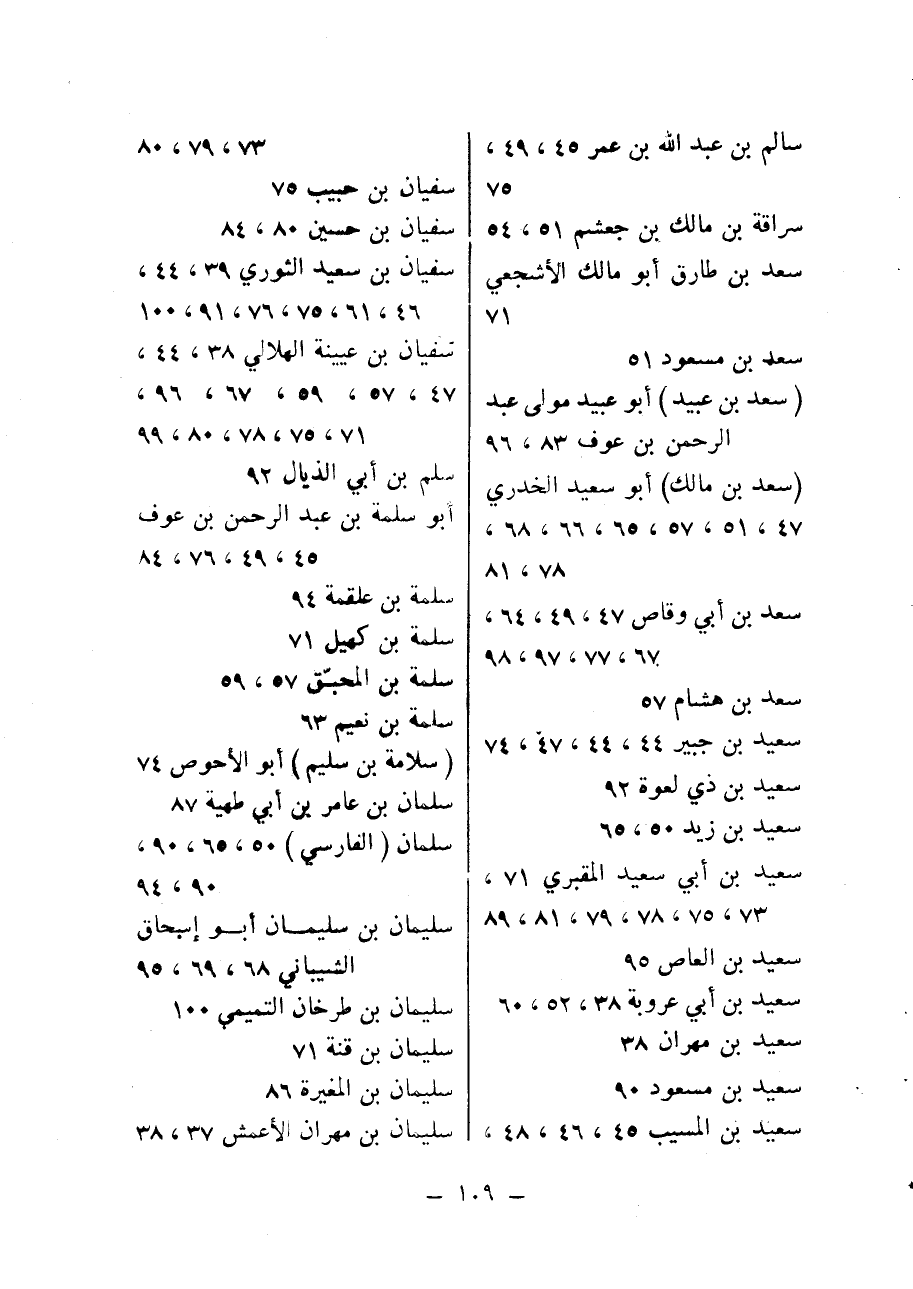 سالم بن عبد الله بن عمر ٤٥ ، ٤٩ ،
٧٥
سراقة بن مالك بن جعشم ٥١ ، ٥٤
سعد بن طارق أبو مالك الأشجعي
٧١
سعد بن مسعود ٥١
( سعد بن عبيد ) أبو عبيد مولى عبد
الرحمن بن عوف ٨٣ ، ٩٦
(سعد بن مالك) أبو سعيد الخدري
٤٧ ، ٥١ ، ٥٧ ، ٦٥ ، ٦٦ ، ٦٨ ،
٧٨ ، ٨١
سعد بن أبي وقاص ٤٧ ، ٤٩ ، ٦٤ ،
٦٧ ، ٧٧ ، ٩٧ ، ٩٨
سعد بن هشام ٥٧
سعيد بن جبير ٤٤ ، ٤٤ ، ٤٧ ، ٧٤
سعيد بن ذي لعوة ٩٢
سعيد بن زيد ٥٠ ، ٦٥
سعيد بن أبي سعيد المقبري ٧١ ،
٧٣ ، ٧٥ ، ٧٨ ، ٧٩ ، ٨١ ، ٨٩
سعيد بن العاص ٩٥
سعيد بن أبي عروبة ٣٨ ، ٥٢ ، ٦٠
سعيد بن مهران ٣٨
سعيد بن مسعود ٩٠
سعيد بن المسيب ٤٥ ، ٤٦ ، ٤٨ ،
٧٣ ، ٧٩ ، ٨٠
سفيان بن حبيب ٧٥
سفيان بن حسين ٨٠ ، ٨٤
سفيان بن سعيد الثوري ٣٩ ، ٤٤ ،
٤٦ ، ٦١ ، ٧٥ ، ٧٦ ، ٩١ ، ١٠٠
سفيان بن عيينة الهلالي ٣٨ ، ٤٤ ،
٤٧ ، ٥٧ ، ٥٩ ، ٦٧ ، ٩٦ ،
٧١ ، ٧٥ ، ٧٨ ، ٨٠ ، ٩٩
سلم بن أبي الذيال ٩٢
أبو سلمة بن عبد الرحمن بن عوف
٤٥ ، ٤٩ ، ٧٦ ، ٨٤
سلمة بن علقمة ٩٤
سلمة بن كهيل ٧١
سلمة بن المحبّق ٥٧ ، ٥٩
سلمة بن نعيم ٦٣
( سلامة بن سليم ) أبو الأحوص ٧٤
سلمان بن عامر بن أبي طهية ٨٧
سلمان ( الفارسي ) ٥٠ ، ٦٥ ، ٩٠ ،
٩٠ ، ٩٤
سليمان بن سليمان أبو إسحاق
الشيباني ٦٨ ، ٦٩ ، ٩٥
سليمان بن طرخان التميمي ١٠٠
سليمان بن قنة ٧١
سليمان بن المغيرة ٨٦
سليمان بن مهران الأعمش ٣٧ ، ٣٨
– ١٠٩ –